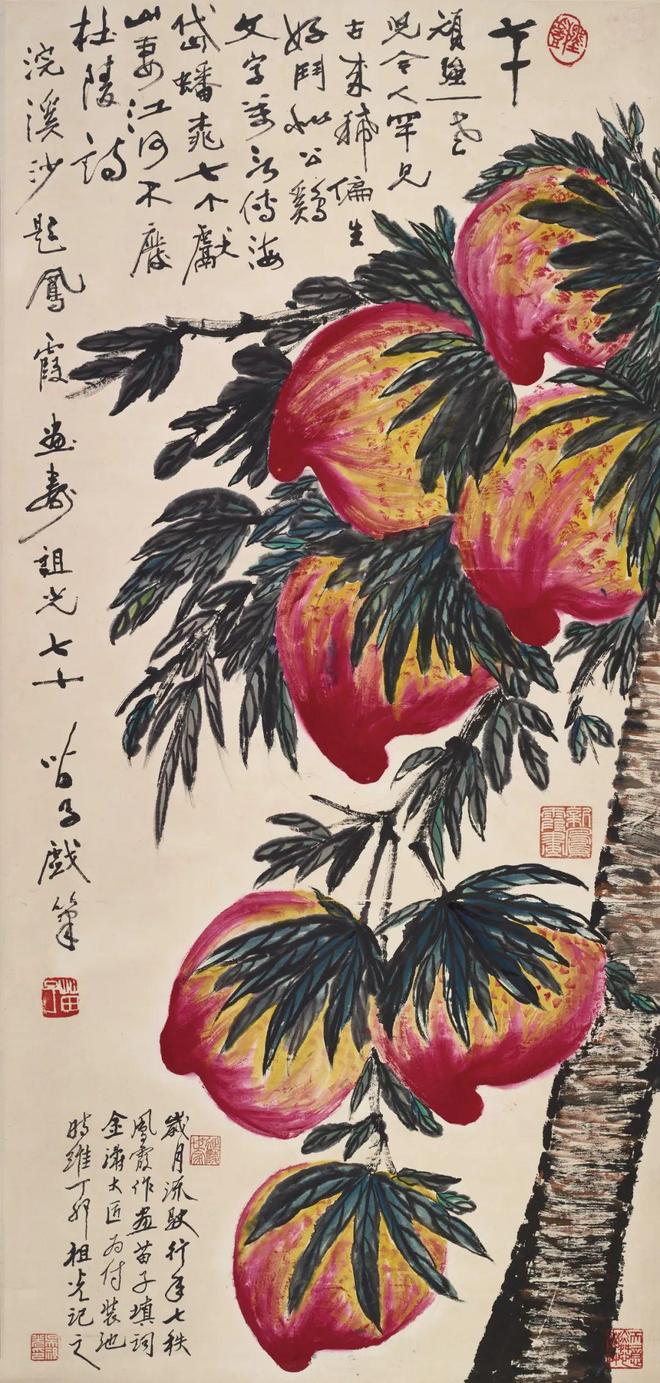 頑強一老
兒令人罕見
古來稀偏生
好鬥似公鷄
文字萬言傳海
岱蟠桃七个獻
山妻江河不廢
杜陵詩
浣溪沙題鳳霞畫壽祖光七十 苗子戲筆
歲月流駛行年七秩
鳳霞作畫苗子填詞
金濤大匠為付裝池
時維丁卯祖光記之